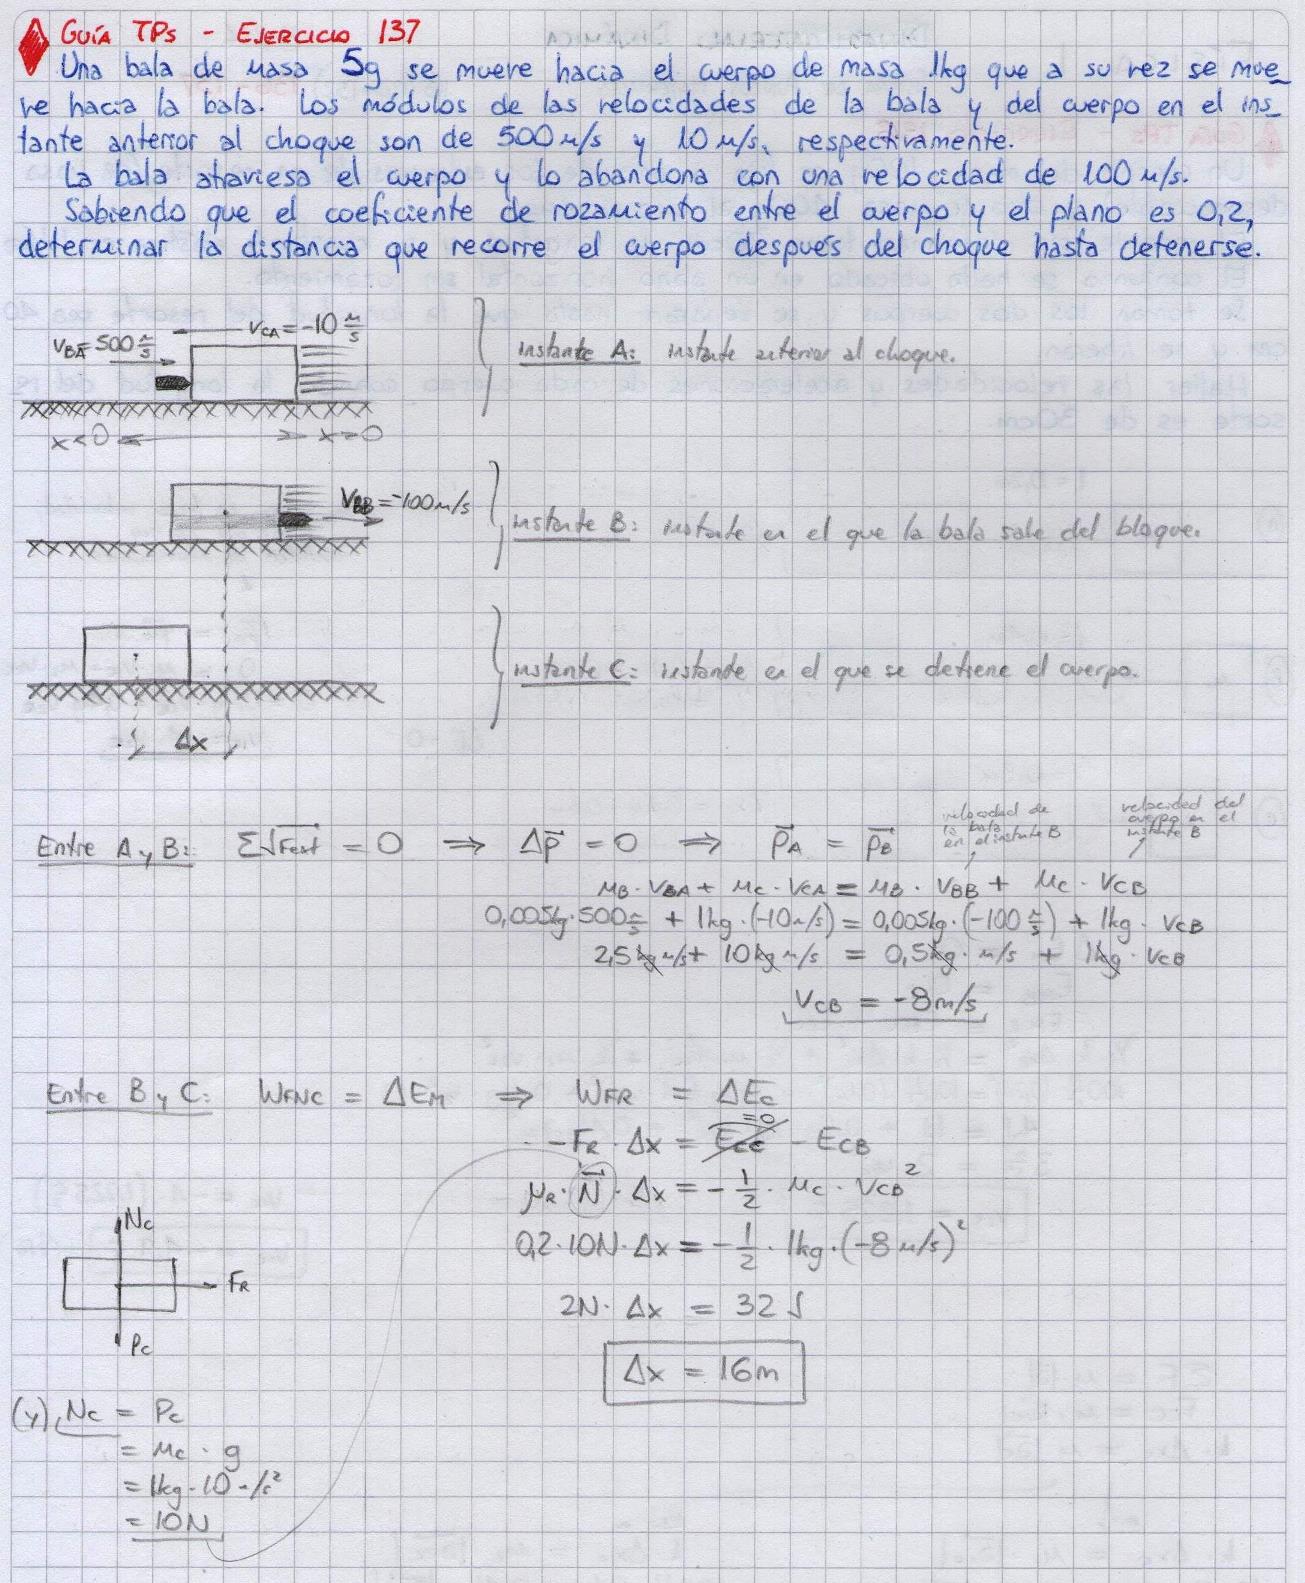 GUÍA TPS - EJERCICIO 137
Una bala de masa 5g se mueve hacia el cuerpo de masa 1kg que a su vez se mue_
ve hacia la bala. Los módulos de las velocidades de la bala y del cuerpo en el ins_
tante anterior al choque son de 500 m/s y 10 m/s, respectivamente.
La bala atraviesa el cuerpo y lo abandona con una velocidad de 100 m/s.
Sabiendo que el coeficiente de rozamiento entre el cuerpo y el plano es 0,2,
determinar la distancia que recorre el cuerpo después del choque hasta detenerse.
VCA = -10 m/s
VBA = 500 m/s
instante A: instante anterior al choque.
x<0 x>0
VBB = -100 m/s
instante B: instante en el que la bala sale del bloque.
instante C: instante en el que se detiene el cuerpo.
Δx
velocidad de la bala en el instante B
velocidad del cuerpo en el instante B
Entre A y B: Σ∫Fext = 0 ⇒ Δp = 0 ⇒ pA = pB
mB · VBA + mC · VCA = mB · VBB + mC · VCB
0,005kg · 500 m/s + 1kg · (-10 m/s) = 0,005kg · (-100 m/s) + 1kg · VCB
2,5 kg m/s + 10 kg m/s = 0,5 kg · m/s + 1kg · VCB
VCB = -8 m/s
Entre B y C: WFNC = ΔEM ⇒ WFR = ΔEC
=0
-FR · Δx = ECC - ECB
μR · N · Δx = -1/2 · mC · VCB²
0,2 · 10N · Δx = -1/2 · 1kg · (-8 m/s)²
2N · Δx = 32 J
Δx = 16m
NC
FR
PC
(y) NC = PC
= mC · g
= 1kg · 10 m/s²
= 10N